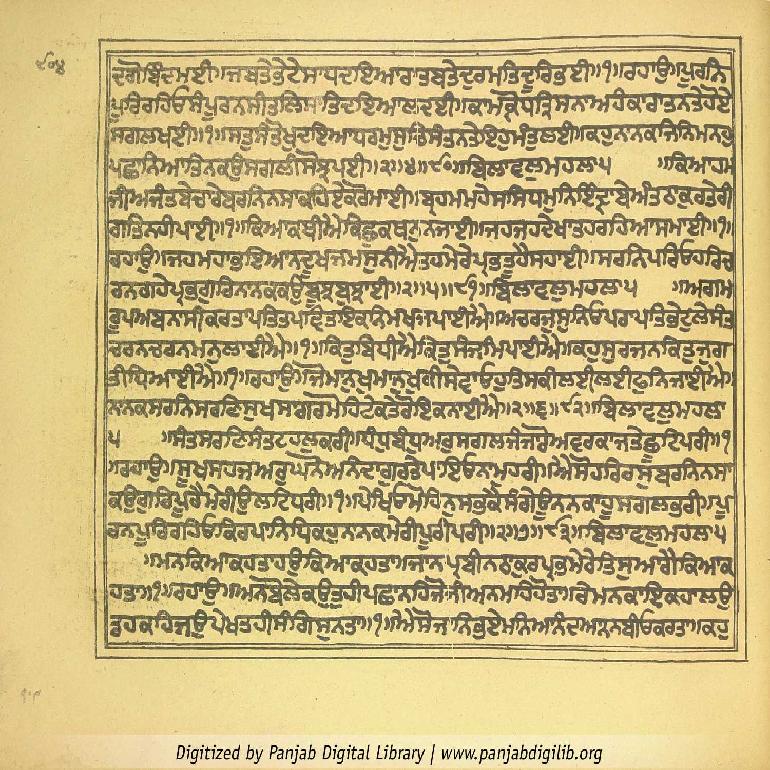 ੯੦੪
ਦਗੋਬਿੰਦਮਈ॥ਜਬਤੇਭੇਟੇਸਾਧਦਇਆਰਾਤਬਤੇਦੁਰਮਤਿਦੂਰਿਭਈ॥੧॥ਰਹਾਉ॥ਪੂਰਨਿ
ਪੂਰਿਰਹਿਓਸੰਪੂਰਨਸੀਤਲਿਸਾਤਿਦਇਆਲਦਈ॥ਕਾਮਕ੍ਰੋਧਤ੍ਰਿਸਨਾਅਹੰਕਾਰਾਤਨਤੇਹੋਏ
ਸਗਲਖਈ॥੧॥ਸਤੁਸੰਤੋਖੁਦਇਆਧਰਮੁਸੁਚਿਸੰਤਨਤੇਇਹੁਮੰਤੁਲਈ॥ਕਹੁਨਾਨਕਜਿਨਿਮਨਹੁ
ਪਛਾਨਿਆਤਿਨਕਉਸਗਲੀਸੋਝਪਈ॥੨॥੪॥੯੦॥ਬਿਲਾਵਲੁਮਹਲਾ੫ ॥ਕਿਆਹਮ
ਜੀਅਜੰਤਬੇਚਾਰੇਬਰਨਿਨਸਾਕਹਿਏਕਰੋਮਾਈ॥ਬ੍ਰਹਮਮਹੇਸਸਿਧਮੁਨਿਇੰਦ੍ਰਾਬੇਅੰਤਠਾਕੁਰਤੇਰੀ
ਗਤਿਨਹੀਪਾਈ॥੧॥ਕਿਆਕਥੀਐਕਿਛੁਕਥਨੁਨਜਾਈ॥ਜਹਜਹਦੇਖਾਤਹਰਹਿਆਸਮਾਈ॥੧॥
ਰਹਾਉ॥ਜਹਮਹਾਭਇਆਨਦੂਖਜਮਸੁਨੀਐਤਹਮੇਰੇਪ੍ਰਭਤੂਹੈਸਹਾਈ॥ਸਰਨਿਪਰਿਓਹਰਿਚ
ਰਨਗਹੇਪ੍ਰਭਗੁਰਿਨਾਨਕਕਉਬੂਝਬੁਝਾਈ॥੨॥੫॥੯੧॥ਬਿਲਾਵਲੁਮਹਲਾ੫ ॥ਅਗਮ
ਰੂਪਅਬਿਨਾਸੀਕਰਤਾਪਤਿਤਪਵਿਤਇਕਨਿਮਖਜਪਾਈਐ॥ਅਚਰਜੁਸੁਨਿਓਪਰਾਪਤਿਭੇਟੁਲੇਸੰਤ
ਚਰਨਚਰਨਮਨੁਲਾਈਐ॥੧॥ਕਿਤੁਬਿਧੀਐਕਿਤੁਸੰਜਮਿਪਾਈਐ॥ਕਹੁਸੁਰਜਨਕਿਤੁਜੁਗ
ਤੀਧਿਆਈਐ॥੧॥ਰਹਾਉ॥ਜੋਮਾਨੁਖੁਮਾਨੁਖਕੀਸੇਵਾਓਹੁਤਿਸਕੀਲਈਲਈਫੁਨਿਜਾਈਐ॥
ਨਾਨਕਸਰਨਿਸਰਣਿਸੁਖਸਾਗਰਮੋਹਿਟੇਕਤੇਰੋਇਕਨਾਈਐ॥੨॥੬॥੯੨॥ਬਿਲਾਵਲੁਮਹਲਾ
੫ ॥ਸੰਤਸਰਣਿਸੰਤਟਹਲਕਰੀ॥ਧੰਧੁਬੰਧੁਅਰੁਸਗਲਜੰਜਾਰੋਅਵਰਕਾਜਤੇਛੂਟਿਪਰੀ॥੧
॥ਰਹਾਉ॥ਸੂਖਸਹਜਅਰੁਘਨੋਅਨੰਦਾਗੁਰਤੇਪਾਇਓਨਾਮੁਹਰੀ॥ਐਸੋਹਰਿਰਸੁਬਰਨਿਨਸਾ
ਕਉਗੁਰਿਪੂਰੈਮੇਰੀਉਲਟਿਧਰੀ॥੧॥ਪੇਖਿਓਮੋਹਨੁਸਭਕੈਸੰਗੇਊਨਨਕਾਹੂਸਗਲਭਰੀ॥ਪੂ
ਰਨਪੂਰਿਰਹਿਓਕਿਰਪਾਨਿਧਿਕਹੁਨਾਨਕਮੇਰੀਪੂਰੀਪਰੀ॥੨॥੭॥੯੩॥ਬਿਲਾਵਲੁਮਹਲਾ੫
॥ਮਨਕਿਆਕਹਤਾਹਉਕਿਆਕਹਤਾ॥ਜਾਨਪ੍ਰਬੀਨਠਾਕੁਰਪ੍ਰਭਮੇਰੇਤਿਸੁਆਗੈਕਿਆਕ
ਹਤਾ॥੧॥ਰਹਾਉ॥ਅਨਬੋਲੇਕਉਤੁਹੀਪਛਾਨਹਿਜੋਜੀਅਨਮਹਿਹੋਤਾ॥ਰੇਮਨਕਾਇਕਹਾਲਉ
ਡਹਕਹਿਜਉਪੇਖਤਹੀਸੰਗਿਸੁਨਤਾ॥੧॥ਐਸੋਜਾਨਿਭਏਮਨਿਆਨੰਦਆਨਨਬੀਓਕਰਤਾ॥ਕਹੁ
Digitized by Panjab Digital Library | www.panjabdigilib.org